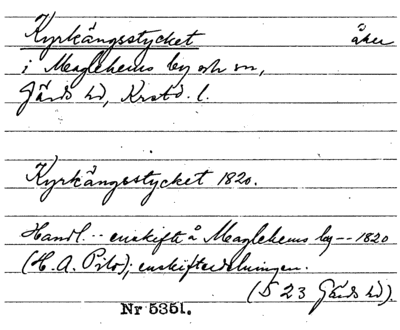 Kyrkängsstycket åker
i Maglehems by och sn,
Gärds hd, Krstd. l.
Kyrkängsstycket 1820.
Handl. -- enskifte å Maglehems by -- 1820
(H. A. Pilo); enskiftesdelningen.
(S 23 Gärds hd).
Nr 5351.